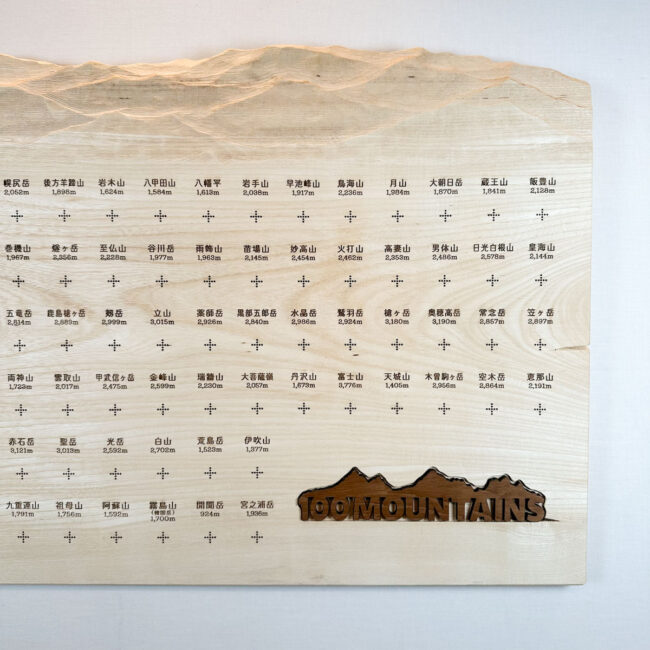 幌尻岳 後方羊蹄山 岩木山 八甲田山 八幡平 岩手山 早池峰山 鳥海山 月山 大朝日岳 蔵王山 飯豊山
2,052m 1,898m 1,624m 1,584m 1,613m 2,038m 1,917m 2,236m 1,984m 1,870m 1,841m 2,128m
巻機山 燧ヶ岳 至仏山 谷川岳 雨飾山 苗場山 妙高山 火打山 高妻山 男体山 日光白根山 皇海山
1,967m 2,356m 2,228m 1,977m 1,963m 2,145m 2,454m 2,462m 2,353m 2,486m 2,578m 2,144m
五竜岳 鹿島槍ヶ岳 剱岳 立山 薬師岳 黒部五郎岳 水晶岳 鷲羽岳 槍ヶ岳 奥穂高岳 常念岳 笠ヶ岳
2,814m 2,889m 2,999m 3,015m 2,926m 2,840m 2,986m 2,924m 3,180m 3,190m 2,857m 2,897m
両神山 雲取山 甲武信ヶ岳 金峰山 瑞牆山 大菩薩嶺 丹沢山 富士山 天城山 木曽駒ヶ岳 空木岳 恵那山
1,723m 2,017m 2,475m 2,599m 2,230m 2,057m 1,673m 3,776m 1,405m 2,956m 2,864m 2,191m
赤石岳 聖岳 光岳 白山 荒島岳 伊吹山
3,121m 3,013m 2,592m 2,702m 1,523m 1,377m
九重連山 祖母山 阿蘇山 霧島山 開聞岳 宮之浦岳
(韓国岳)
1,791m 1,756m 1,592m 1,700m 924m 1,936m
100MOUNTAINS